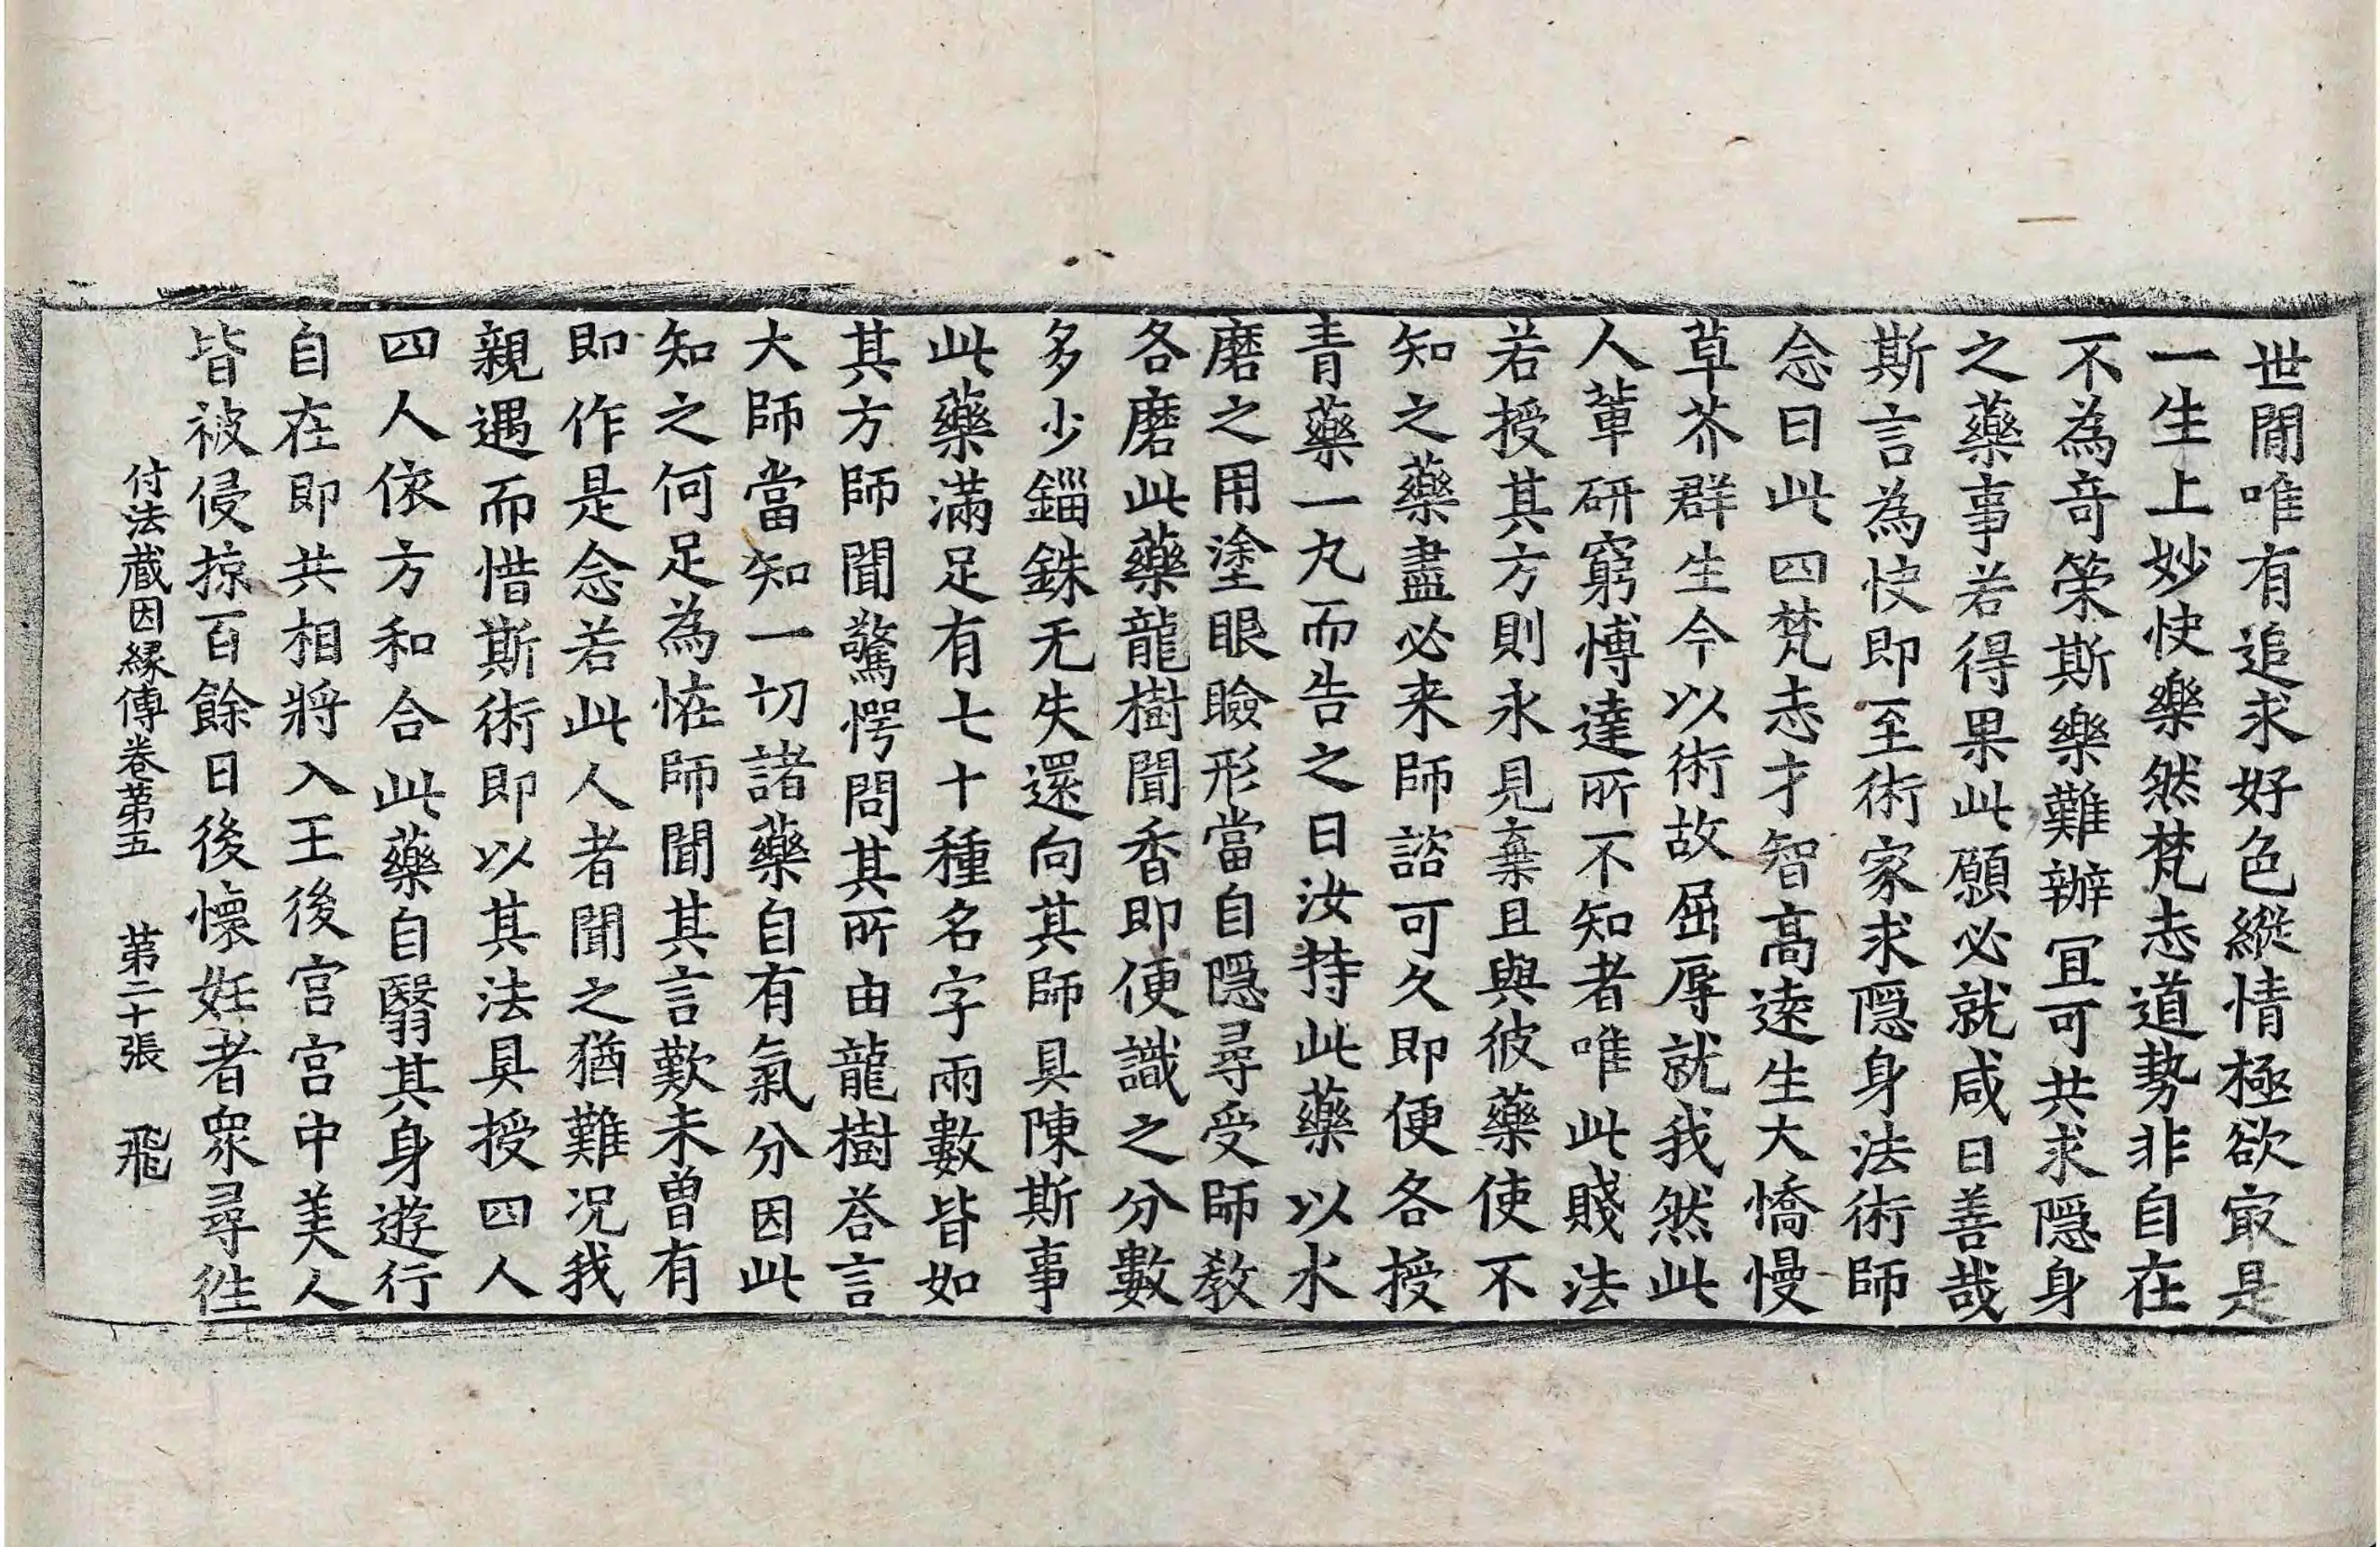 世閒唯有追求好色縱情極欲㝡是
一生上妙快樂然梵志道勢非自在
不為竒策斯樂難辦冝可共求隱身
之藥事若得果此願必就咸曰善哉
斯言為快即至術家求隱身法術師
念曰此四梵志才智高逺生大憍慢
草芥群生今以術故屈辱就我然此
人輩研窮博達所不知者唯此賤法
若授其方則永見棄且與彼藥使不
知之藥盡必来師諮可久即便各授
青藥一丸而告之曰汝持此藥以水
磨之用塗眼瞼形當自隱尋受師教
各磨此藥龍樹聞香即便識之分數
多少錙銖无失還向其師具陳斯事
此藥滿足有七十種名字兩數皆如
其方師聞驚愕問其所由龍樹荅言
大師當知一切諸藥自有氣分因此
知之何足為恠師聞其言歎未曽有
即作是念若此人者聞之猶難况我
親遇而惜斯術即以其法具授四人
四人依方和合此藥自翳其身遊行
自在即共相將入王後宫宫中美人
皆被侵掠百餘日後懷妊者衆尋徃
付法蔵因縁傳卷第五　第二十張　飛